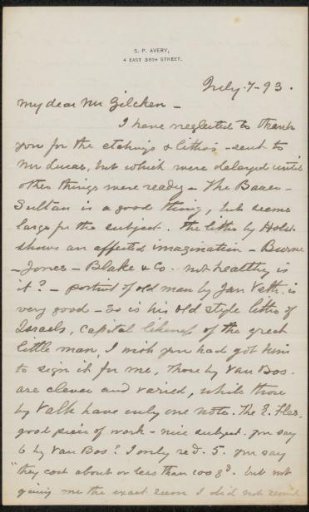 S. P. AVERY,
4 EAST 38TH STREET.
July. 7 - 93.
My dear Mr Zilcken -
I have neglected to thank
you for the etchings & litho's - sent to
Mr Lucas, but which were delayed until
other things were ready - The Bauer -
Sultan is a good thing, but seems
large for the subject. The litho by Holst
shows an affected imagination - Burne
- Jones - Blake & Co. not healthy is
it? - portrait of old man by Jan Veth is
very good - so is his old style litho of
Israels, capital likeness of the great
little man, I wish you had got him
to sign it for me, those by Van Bos.
are clever and varied, while those
by Valk have only one note. The
good piece of work - nice subject. you say
6 by Van Bos? I only recd. 5. you say
"they cost about or less than 100 gd. but not
giving me the exact sum I did not remit